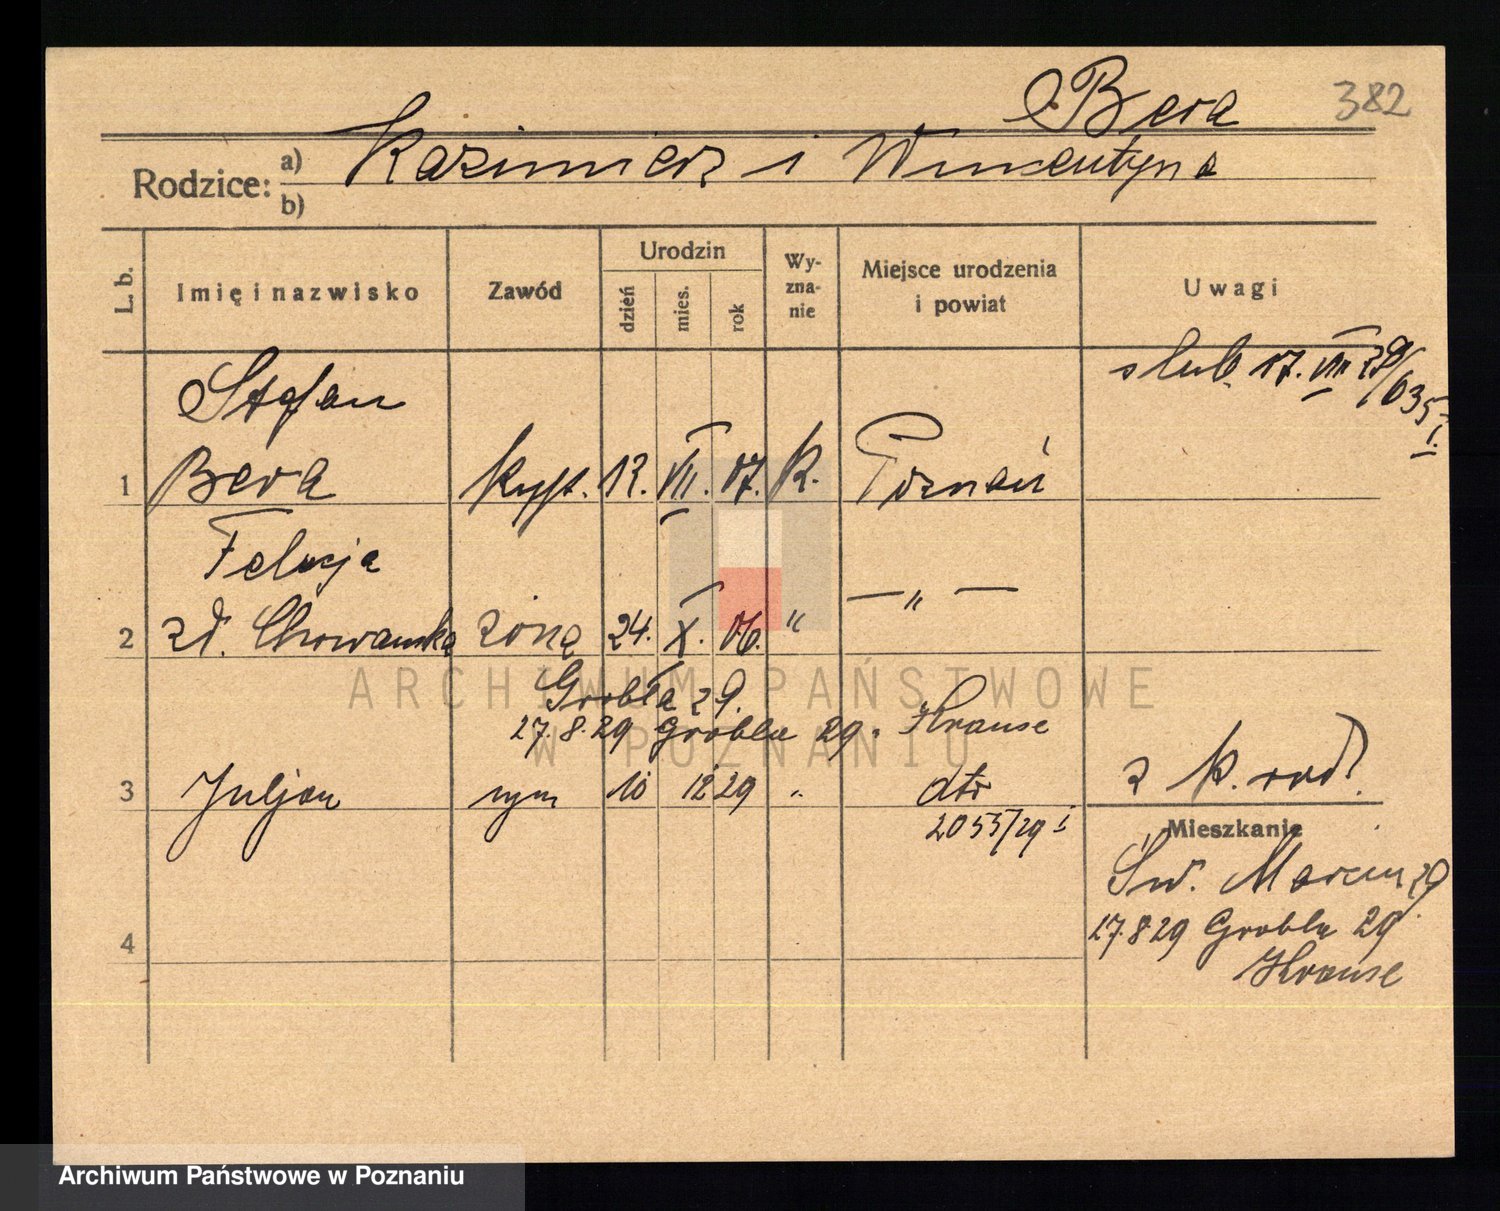 Bera
382
Rodzice:
a) Kazimierz i Wincentyna
b)
L. b.
Imię i nazwisko
Zawód
Urodzin
dzień
mies.
rok
Wy-
zna-
nie
Miejsce urodzenia
i powiat
Uwagi
ślub. 17. VIII 29/635
I.
Stefan
1 Bera 12. VII. 07. K. Poznań
Felicja
2 zd. Chowańska żona 24. X. 06. " — " —
Grobla 29.
27.8.29 Grobla 29. Krause
3 Juljan syn 10 12 29 " dto z k. rod.
2055/29 I
Mieszkanie
Św. Marcin 29
27.8 29 Grobla 29
Krause
4
ARCHIWUM PAŃSTWOWE
W POZNANIU
Archiwum Państwowe w Poznaniu